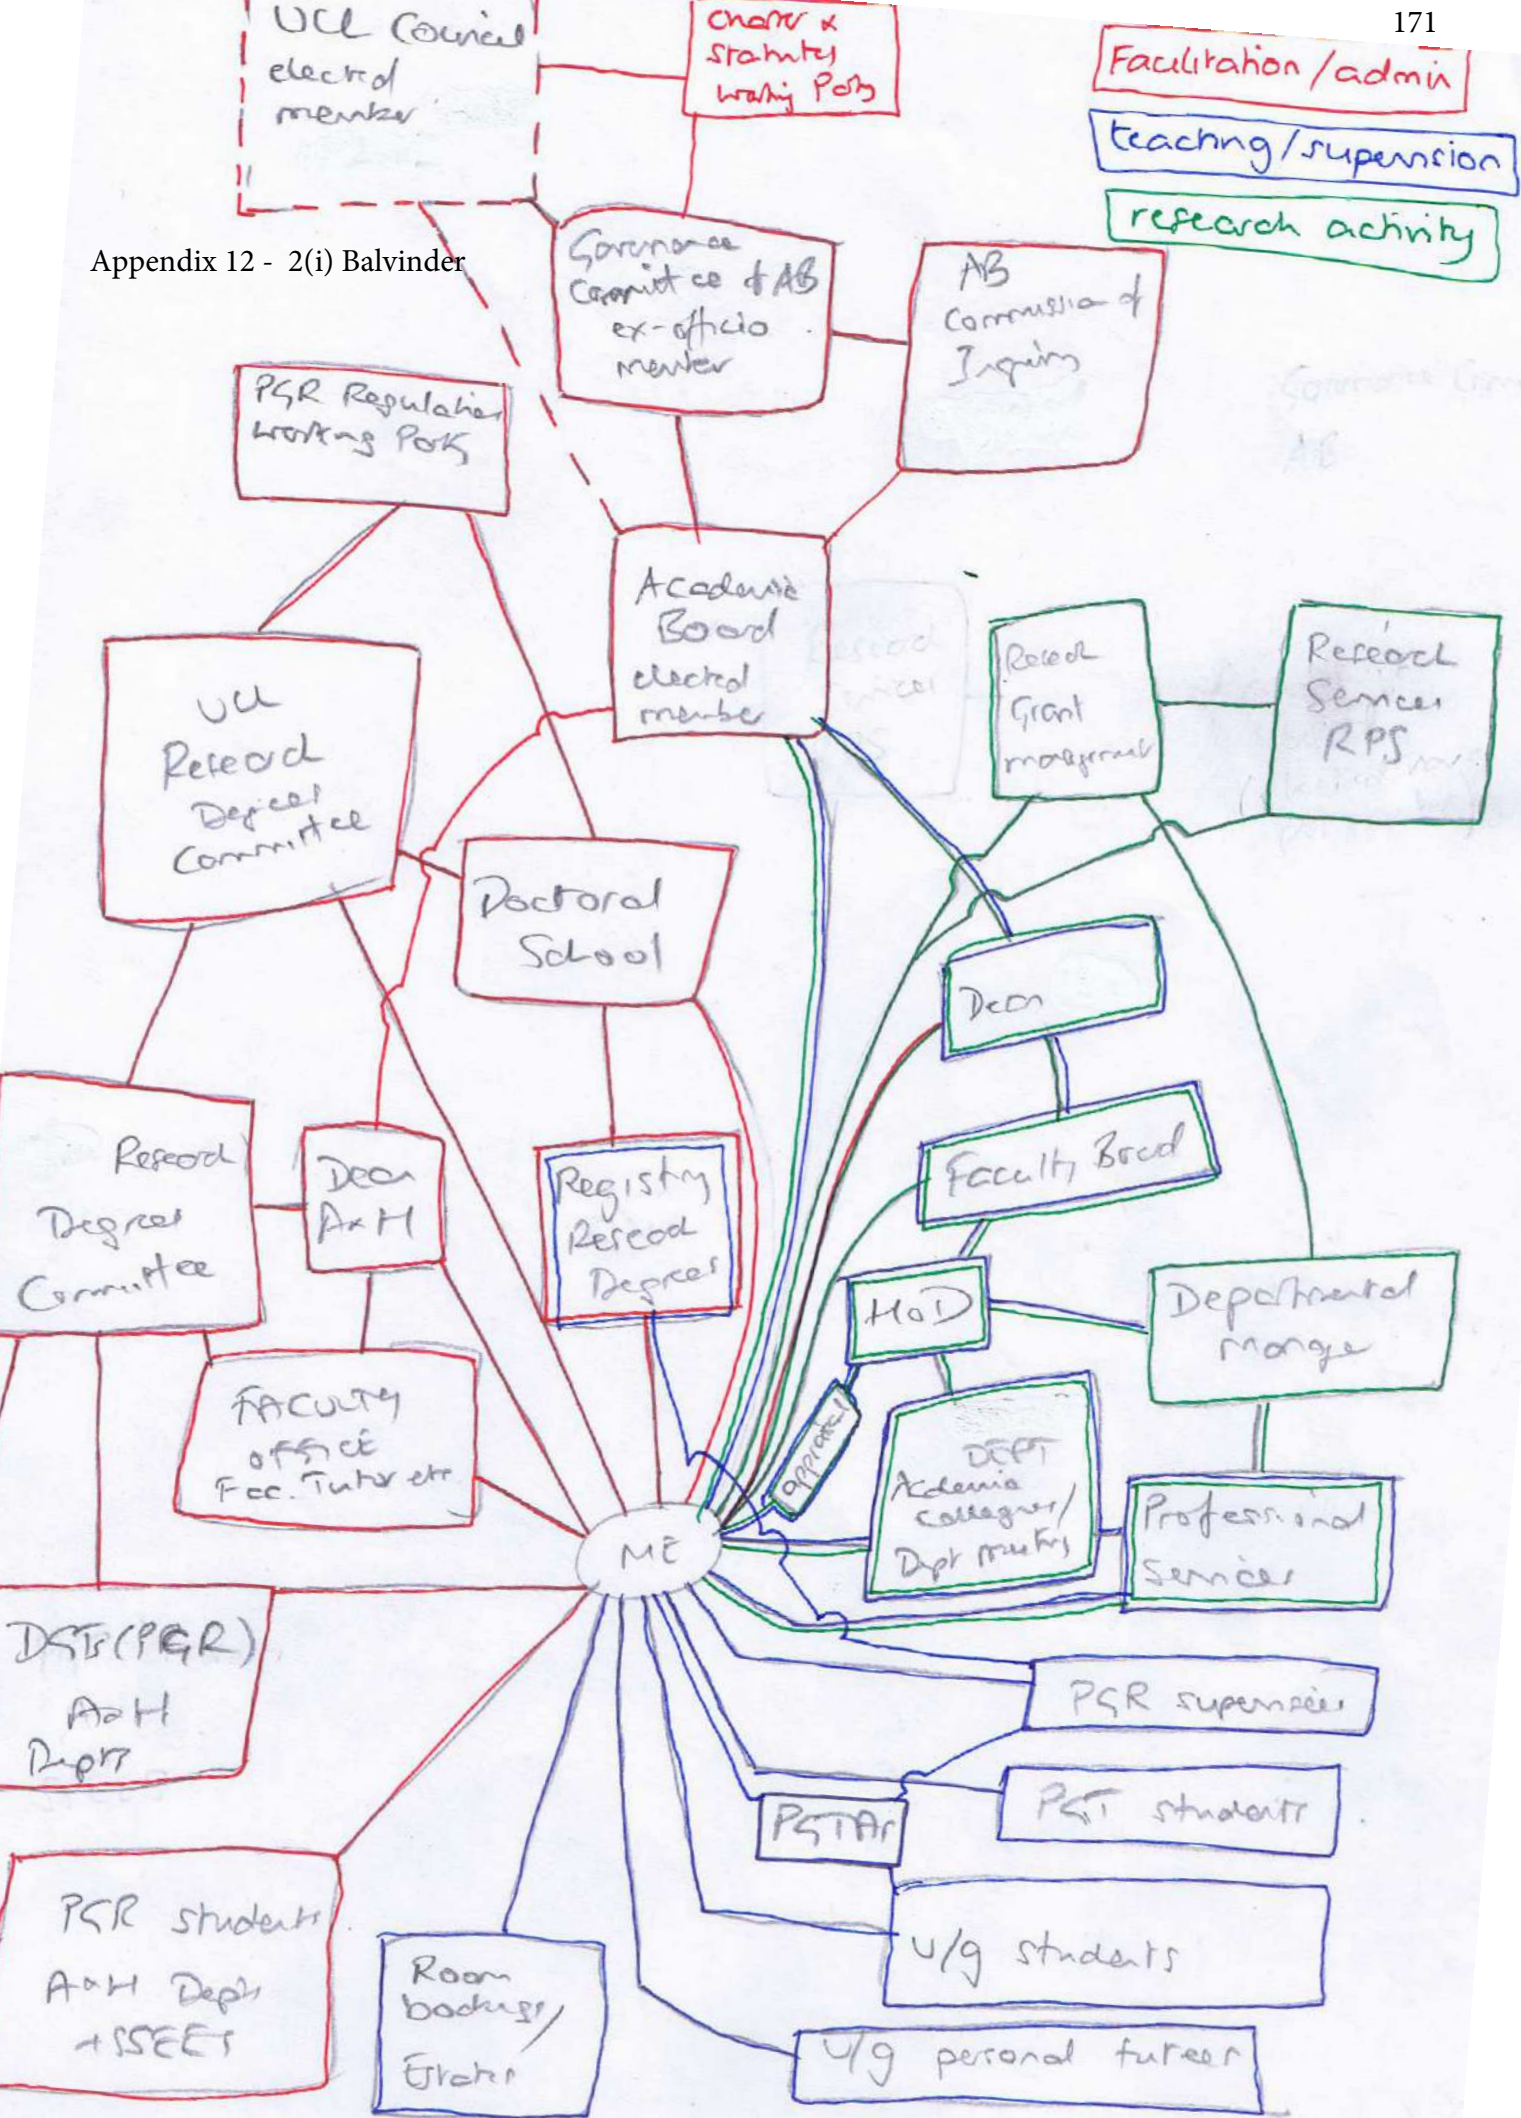 171
UCL Council
elected
member
Charter &
Statutes
Working Party
Facilitation/admin
teaching/supervision
research activity
Appendix 12 -  2(i) Balvinder
Governance
Committee of AB
ex-officio
member
AB
Commission of
Inquiry
PGR Regulation
Working Party
Academic
Board
elected
member
Research
Grant
management
Research
Services
RPS
UCL
Research
Degrees
Committee
Doctoral
School
Dean
Research
Degrees
Committee
Dean
A&H
Registry
Research
Degrees
Faculty Board
HoD
Departmental
manager
FACULTY
OFFICE
Fac. Tutor etc
appraisal
DEPT
Academic
Colleagues/
Dept meetings
Professional
Services
ME
DGTs(PGR)
A&H
Depts
PGR supervisees
PGT students
PGTAs
PGR students
A&H Depts
+SSEES
Room
bookings/
Estates
u/g students
u/g personal tutees